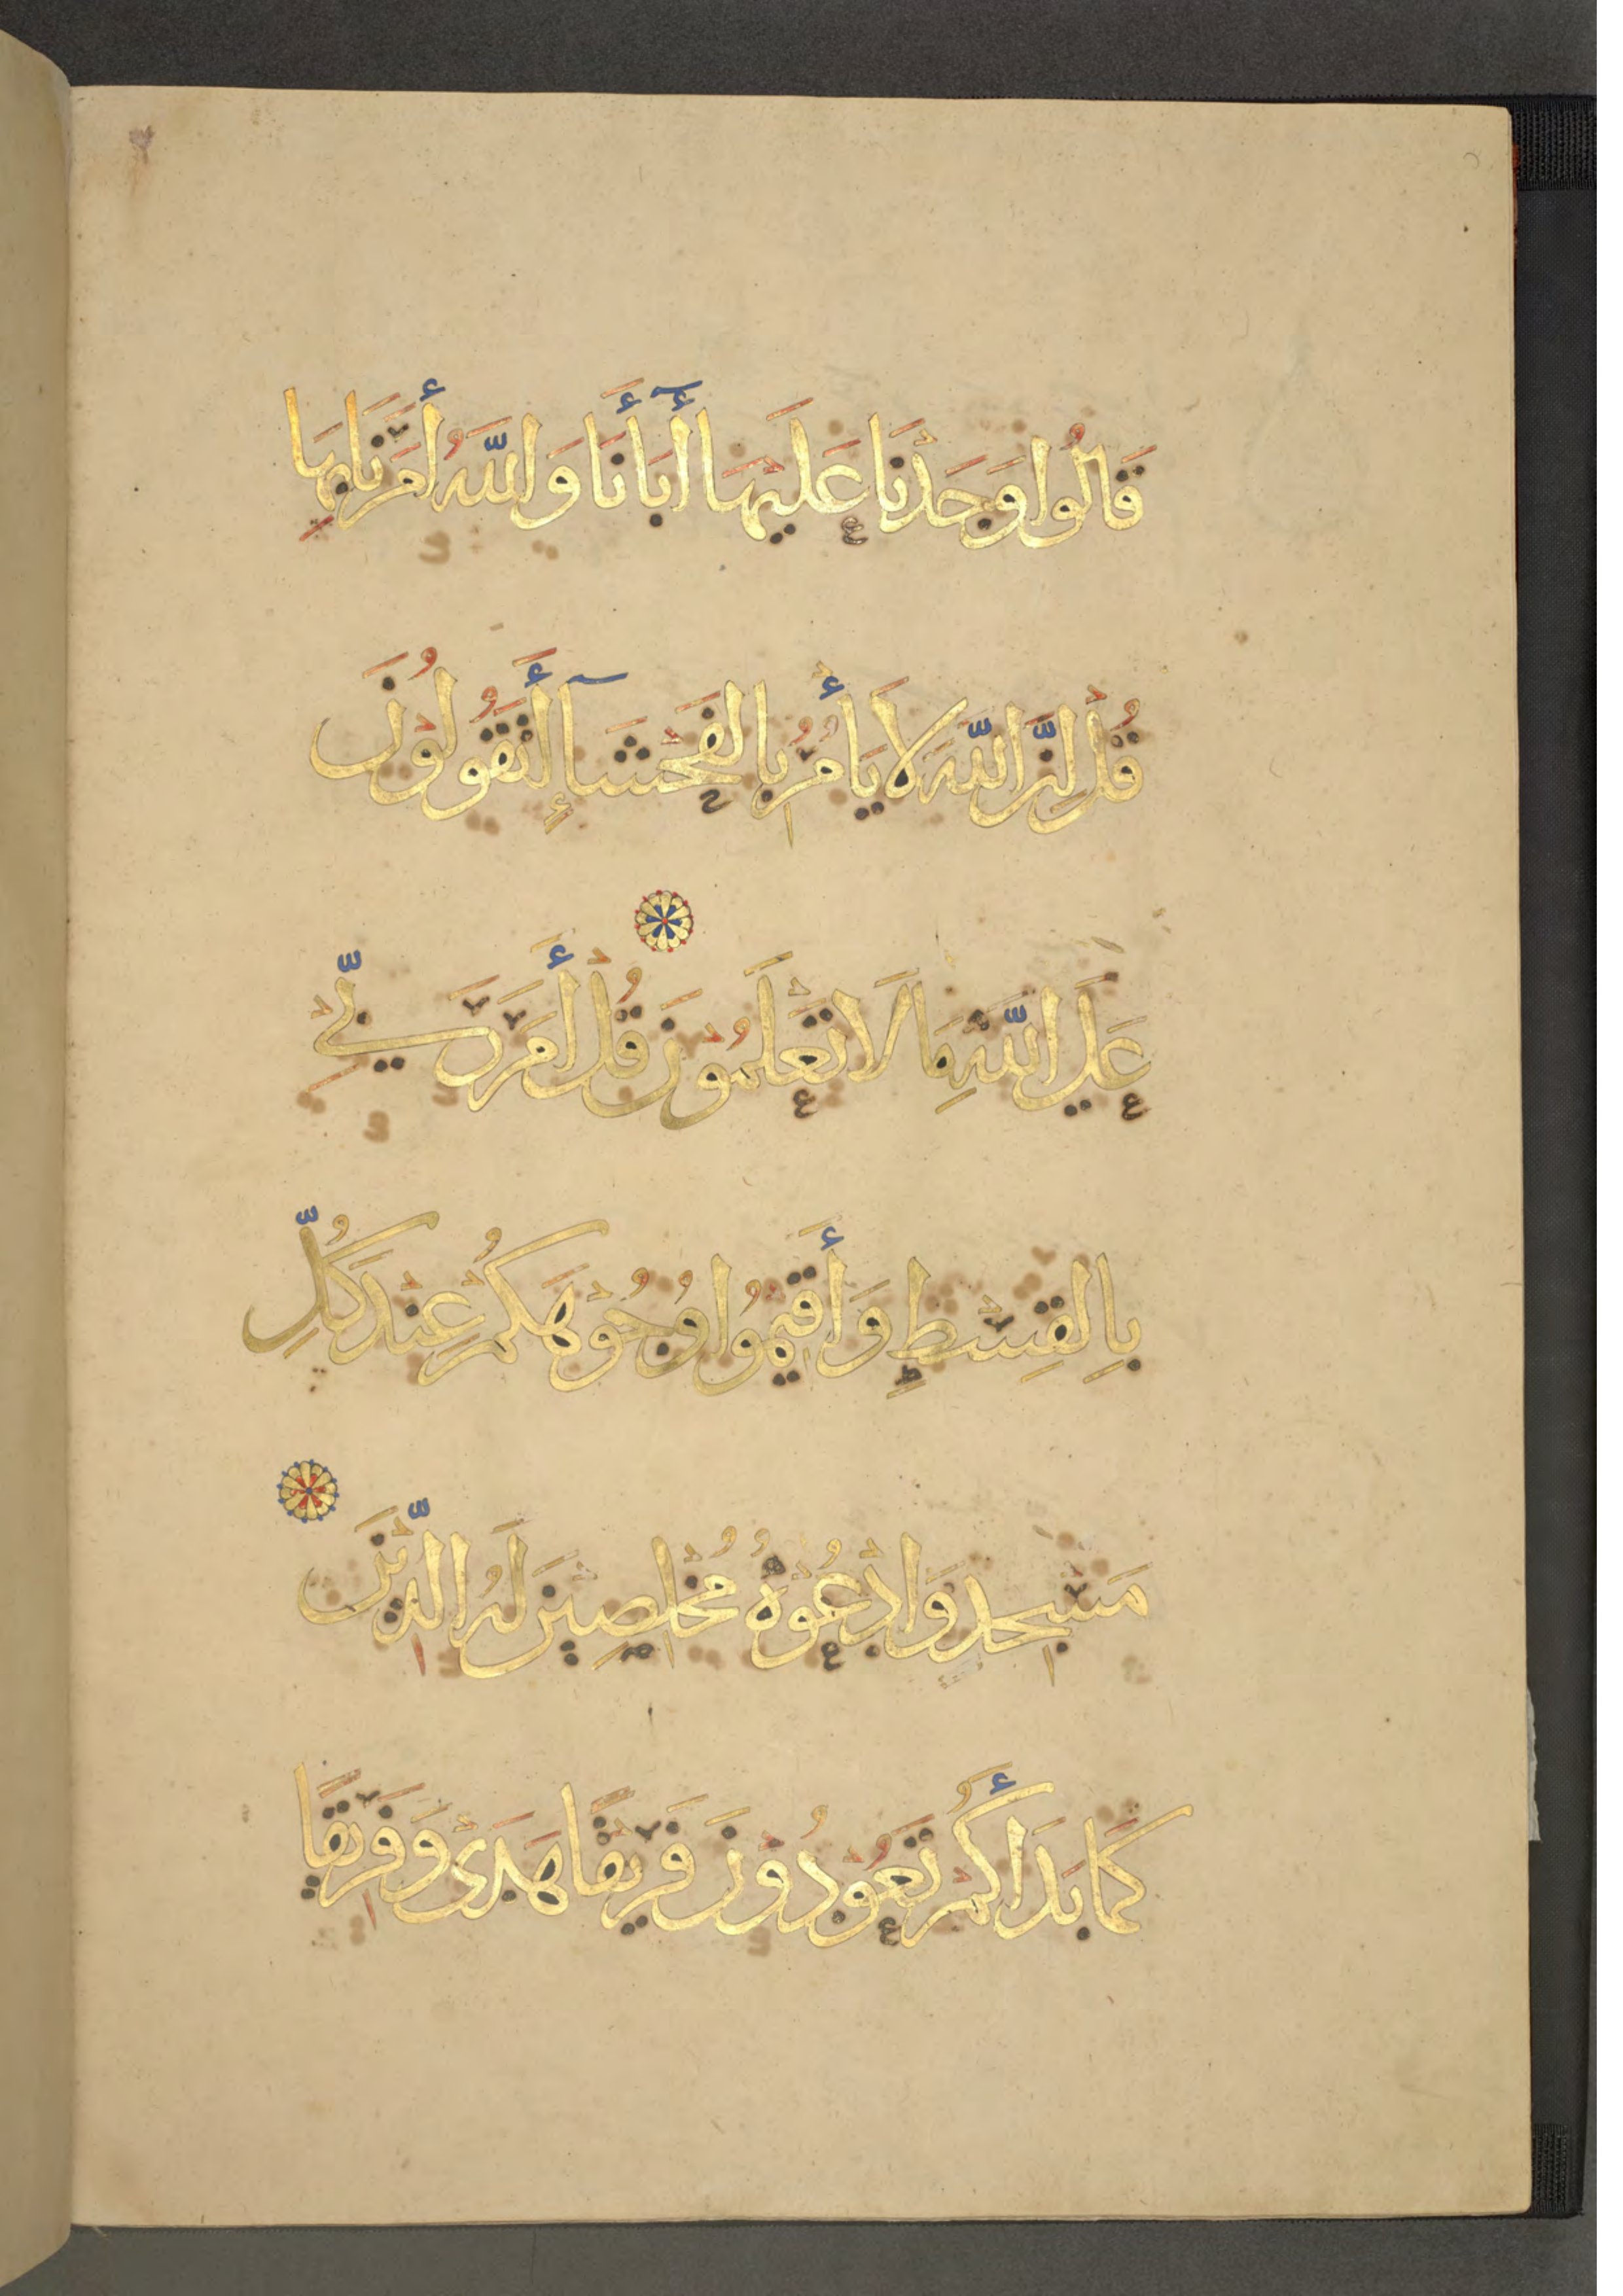 قَالُوا وَجَدْنَا عَلَيْهَا أَبَآءَنَا وَاللَّهُ أَمَرَنَا بِهَا
قُلْ إِنَّ اللَّهَ لَا يَأْمُرُ بِالْفَحْشَآءِ أَتَقُولُونَ
عَلَى اللَّهِ مَا لَا تَعْلَمُونَ قُلْ أَمَرَ رَبِّي
بِالْقِسْطِ وَأَقِيمُوا وُجُوهَكُمْ عِنْدَ كُلِّ
مَسْجِدٍ وَادْعُوهُ مُخْلِصِينَ لَهُ الدِّينَ
كَمَا بَدَأَكُمْ تَعُودُونَ فَرِيقًا هَدَى وَفَرِيقًا